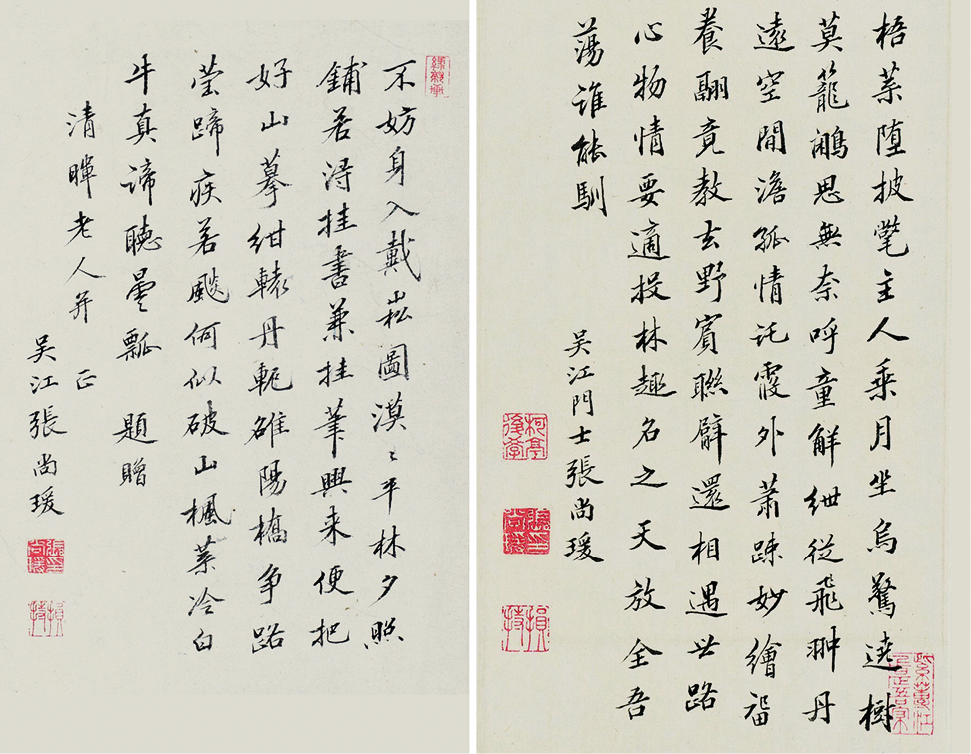 梧葉墮披氅主人乘月坐烏驚遶樹
莫籠鷳思無奈呼童解紲從飛翀丹
遠空閒澹孤情託霞外蕭踈妙繪畱
養翮竟教玄野賓聯臂還相遇世路
心物情要適投林趣名之天放全吾
蕩誰能馴
吳江門士張尚瑗
柯亭後學
損持
不妨身入戴崧圖漠〻平林夕照
鋪若潯挂書兼挂筆興来便把
好山摹紺轅丹軛雒陽橋争路
瑩蹄疾若飈何似破山楓葉冷白
牛真諦聽曇瓢 題贈
清暉老人并正
吳江張尚瑗
損持